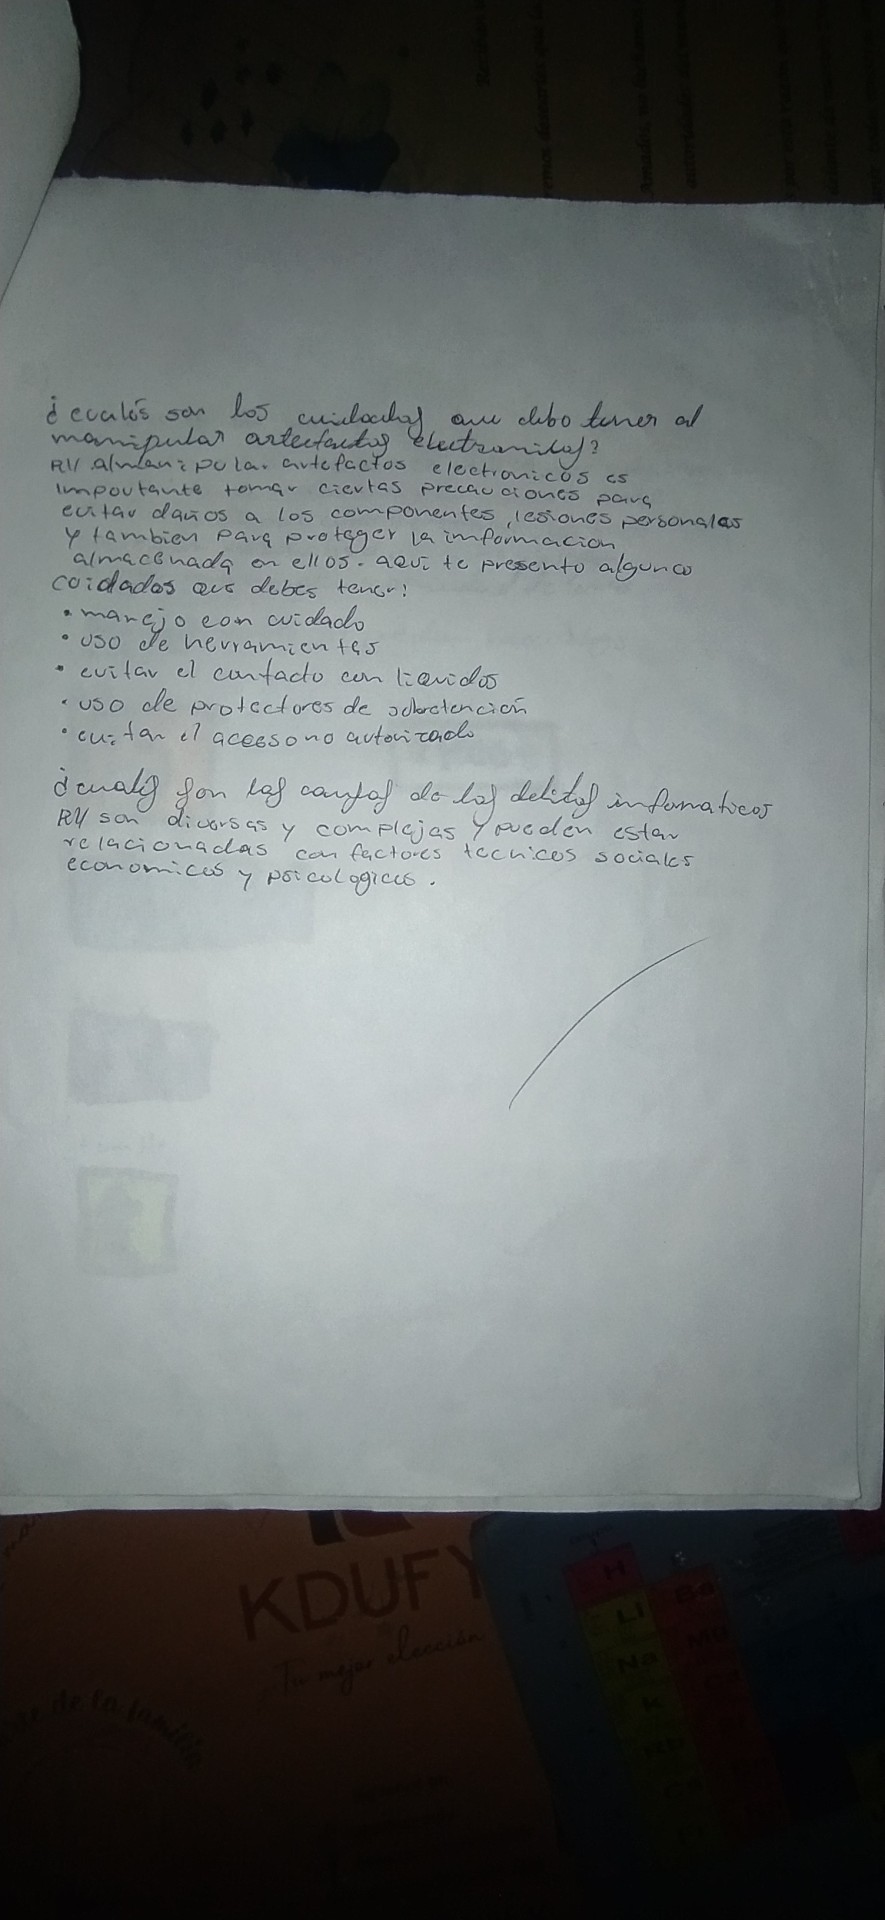 ¿cuales son los cuidados que debo tener al
manipular artefactos electronicos?
R// al manipular artefactos electronicos es
importante tomar ciertas precauciones para
evitar daños a los componentes, lesiones personales
y tambien para proteger la informacion
almacenada en ellos. aqui te presento algunco
cuidados que debes tener:
• manejo con cuidado
• uso de herramientas
• evitar el contacto con liquidos
• uso de protectores de sobretención
• evitar el acceso no autorizado
¿cuales son las causas de los delitos informaticos
R// son diversas y complejas y pueden estar
relacionadas con factores tecnicos sociales
economicos y psicologicos.
KDUFY
Tu mejor elección
de la familia
H
Li Be
Na Mg
K